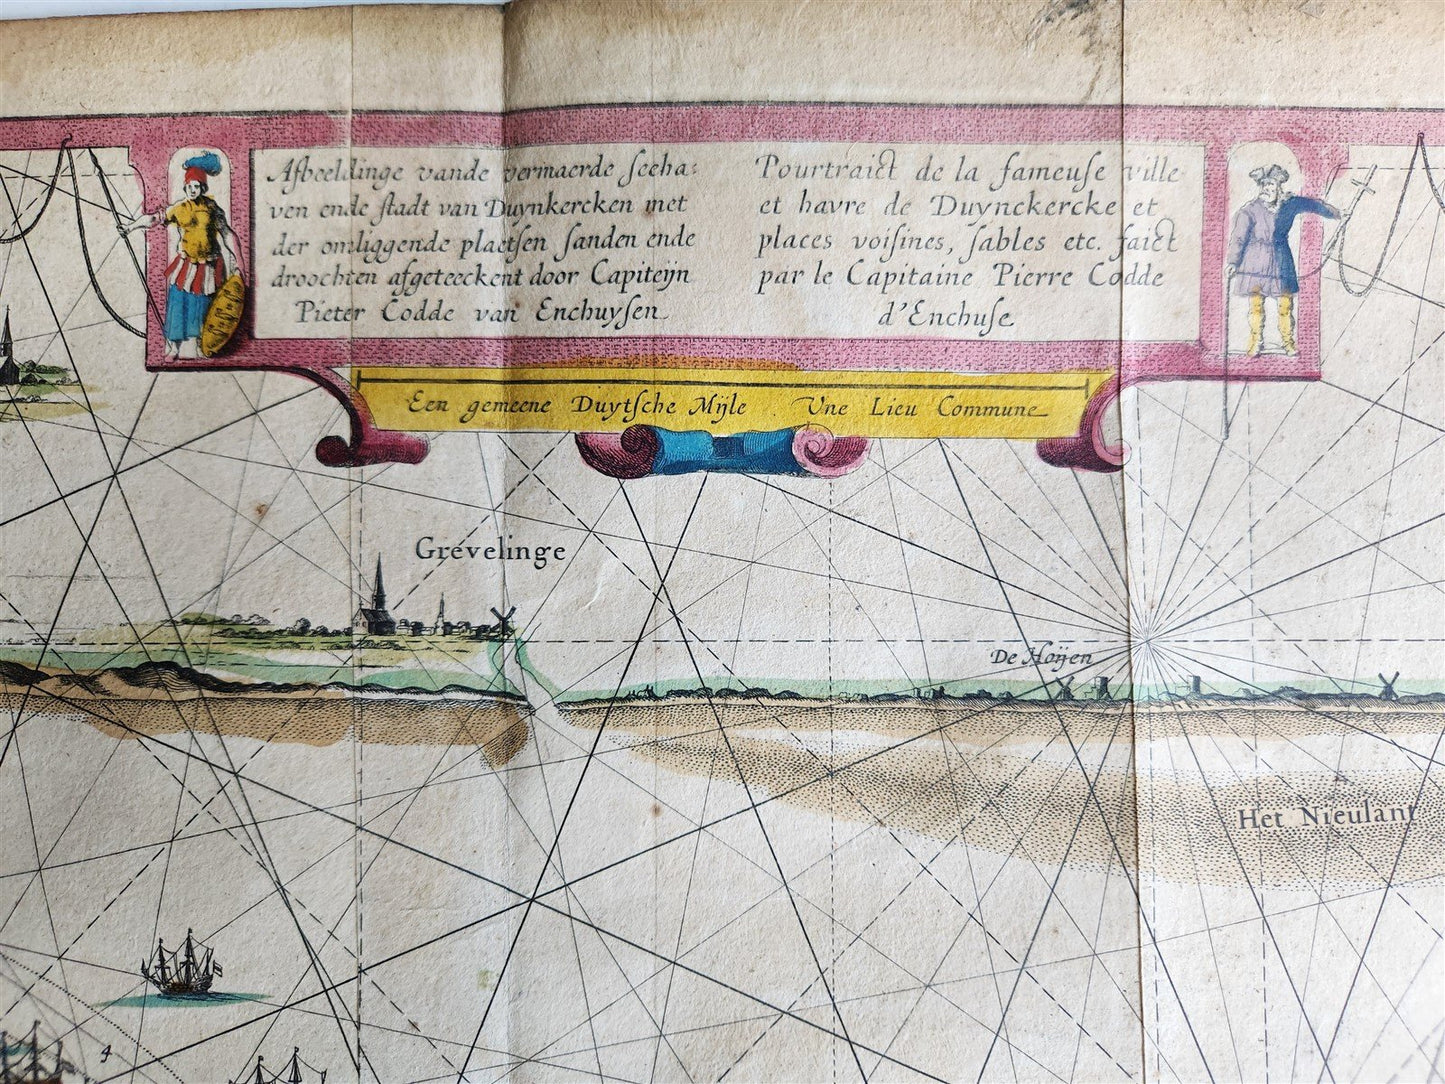 Afbeeldinge vande vermaerde seeha:
ven ende stadt van Duynkercken met
der omliggende plaetsen sanden ende
droochten afgeteeckent door Capiteijn
Pieter Codde van Enchuysen
Pourtraict de la fameuse ville
et havre de Duynckercke et
places voisines, sables etc. faict
par le Capitaine Pierre Codde
d'Enchuse
Een gemeene Duytsche Mijle. Une Lieu Commune
Grevelinge
De Hoijen
Het Nieulant
4